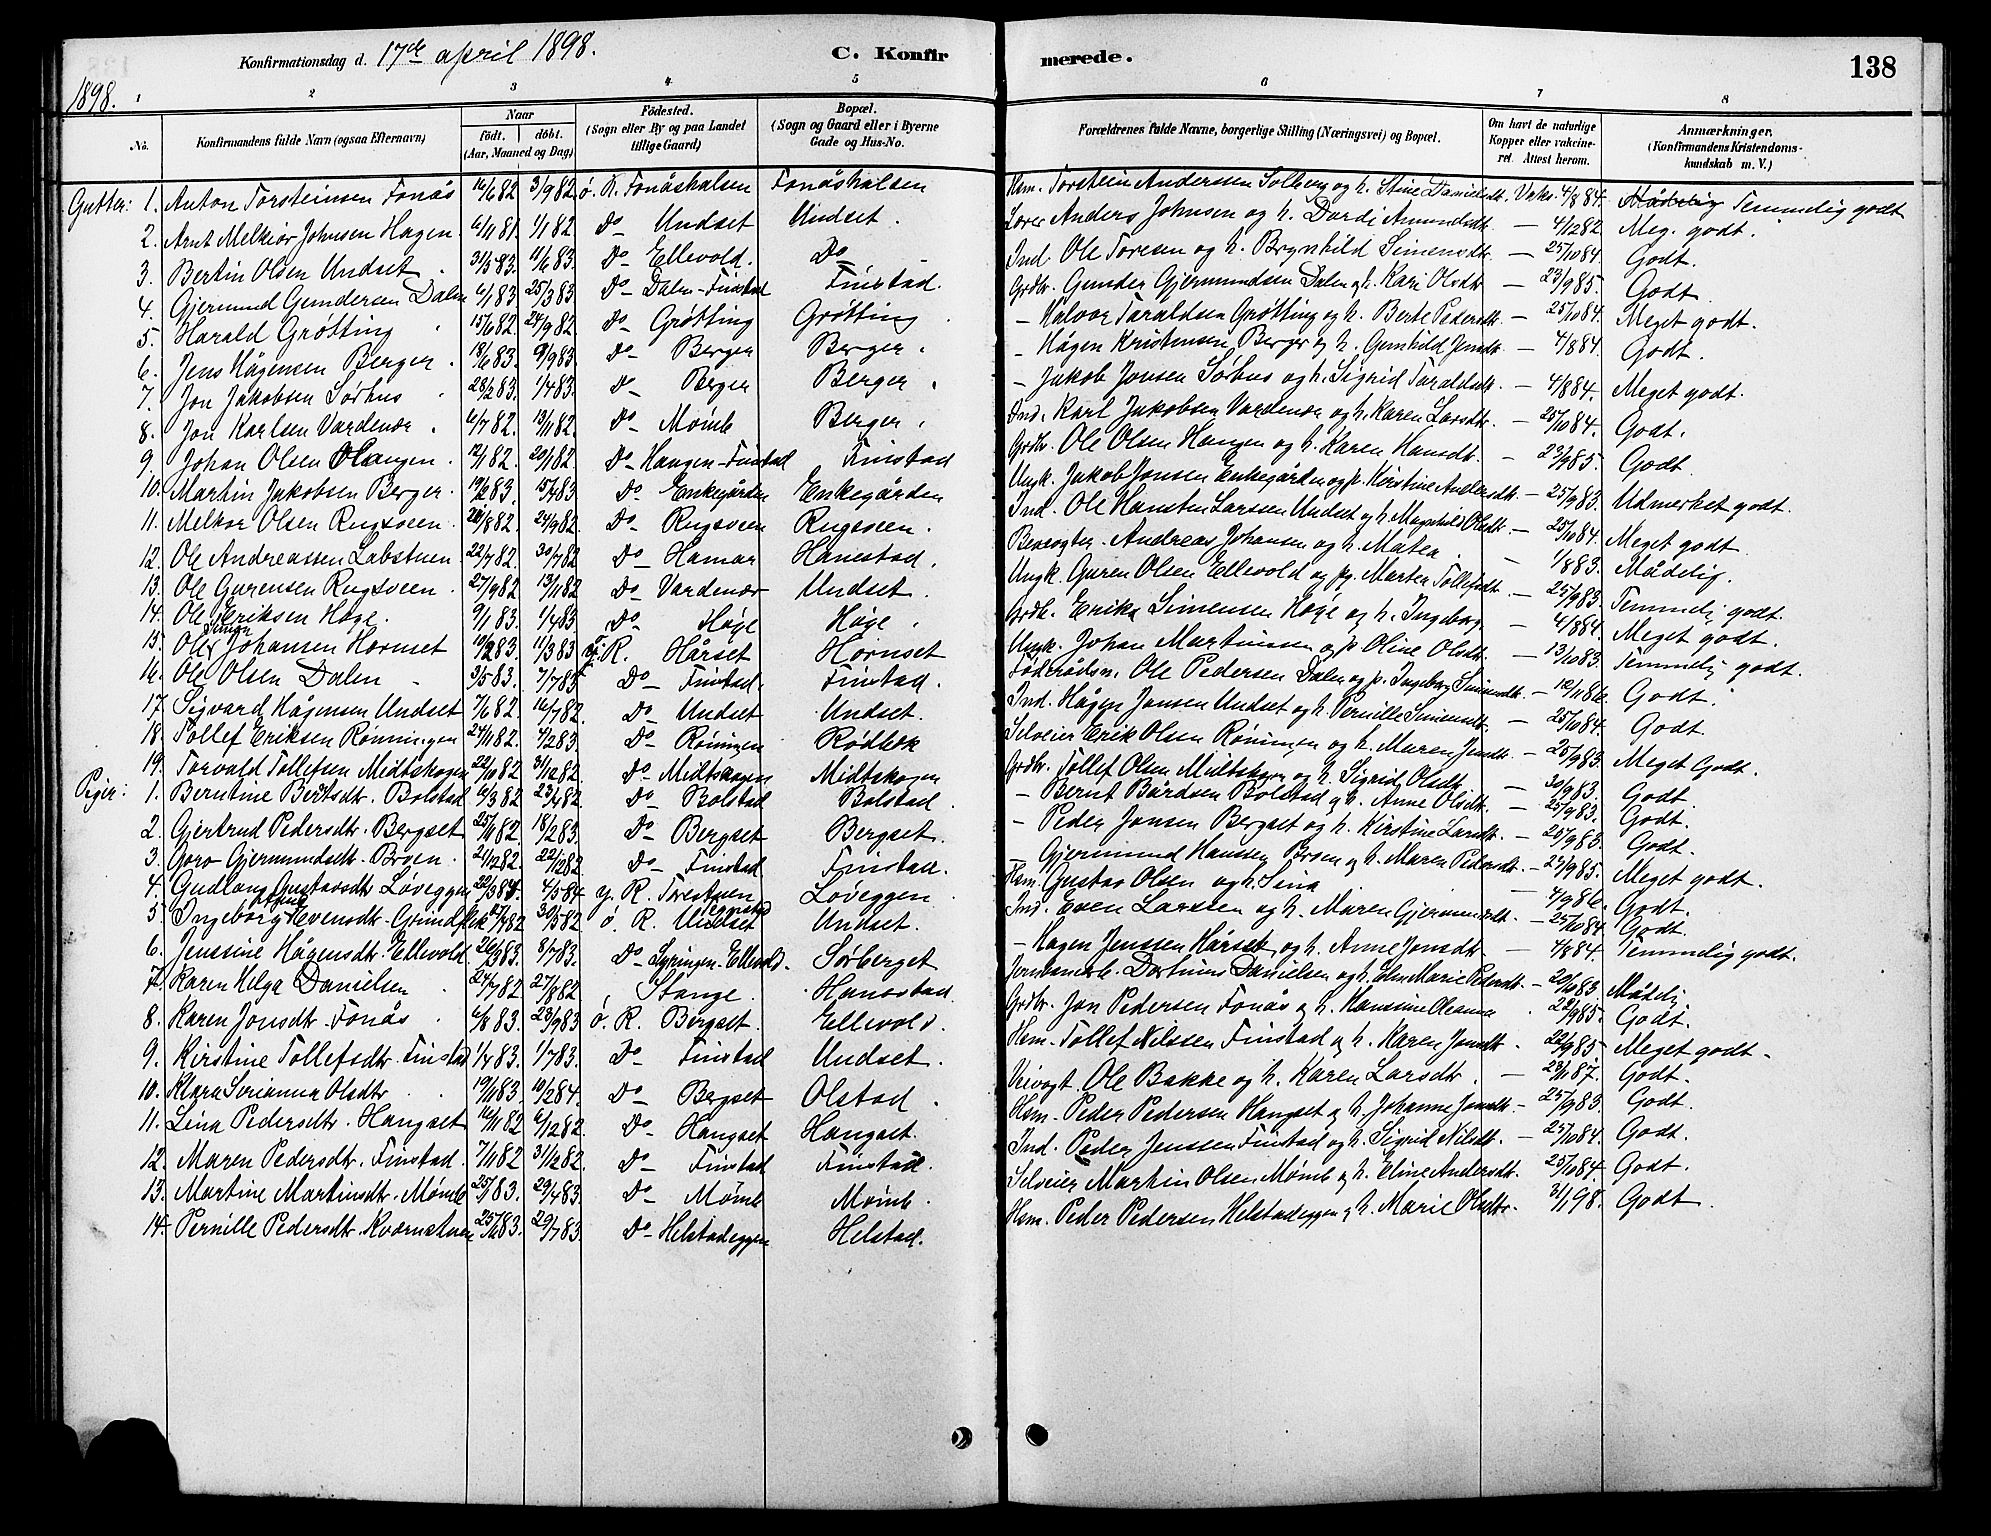 Konfirmationsdag d. 17de april 1898. C. Konfirmerede. 138
1898.
1 2 3 4 5 6 7 8
No. Konfirmandens fulde Navn (ogsaa Efternavn) Naar født. døbt. (Aar, Maaned og Dag) Fødested. (Sogn eller By og paa Landet tillige Gaard) Bopæl. (Sogn og Gaard eller i Byerne Gade og Hus-No. Forældrenes fulde Navne, borgerlige Stilling (Næringsvei) og Bopæl. Om havt de naturlige Kopper eller vakcineret. Attest herom. Anmærkninger. (Konfirmandens Kristendomskundskab m. V.)
Gutter: 1. Anton Torsteinsen Fonås 16/6 82 3/9 82 ø. R. Fonåshalsen Fonåshalsen Hsm. Torstein Anderssen Solberg og h. Stine Danielsdt. Vaks. 4/8 84. Mådelig Temmelig godt
2. Arnt Melkior Johnsen Hagen 6/11 81. 1/1 82 Do Undset Undset. Anders Johnsen og h. Dordi Amundsdt. — 4/12 82. Meg. godt.
3. Bertin Olsen Undset. 31/3 83. 11/6 83. Do Ellevold. Do Ind. Ole Toresen og h. Brynhild Simensdtr. — 25/10 84. Godt.
4. Gjermund Gundersen Dalen 6/1 83 25/3 83 Do Dalen-Finstad Finstad. Grdbr. Gunder Gjermundsen Dalen og h. Kari Olsdtr — 23/9 85. Godt.
5. Harald Grøtting 15/6 82 24/9 82. Do Grøtting Grøtting. — Halvor Taraldsen Grøtting og h. Berte Pedersdtr. — 25/10 84. Meget godt.
6. Jens Hågensen Berger. 18/6 83. 9/9 83. Do Berger Berger. — Hågen Kristensen Berger og h. Gunhild Jensdtr. — 4/8 84. Godt.
7. Jon Jakobsen Sørhus 28/2 83. 1/4 83. Do Berger Berger. — Jakob Jonsen Sørhus og h. Sigrid Taraldsdt. — 4/8 84. Meget godt.
8. Jon Karlsen Vardenær. 6/7 82. 13/11 82. Do Mømb Berger. Ind. Karl Jakobsen Vardenær og h. Karen Larsdtr. — 25/10 84. Godt.
9. Johan Olsen Haugen. 12/1 82. 20/1 82. Do Haugen-Finstad Finstad Grdbr. Ole Olsen Haugen og h. Karen Hansdtr. — 23/9 85. Godt.
10. Martin Jakobsen Berger. 19/2 83. 15/4 83 Do Enkegården Enkegården Ungk. Jakob Jonsen Enkegården og p. Kirstine Andersdtr. — 25/9 83. Udmerket godt.
11. Melkor Olsen Rugsveen. /8 82. 24/9 82. Do Rugsveen Rugsveen. Ind. Ole Hansten Larssen Undset og h. Magnhild Olsdtr. — 25/10 84. Meget godt.
12. Ole Andreassen Labstuen 22/4 82. 30/7 82 Do Hamar Hanestad. Andreas Johansen og h. Matea. — 1/8 83. Mådelig.
13. Ole Gurensen Rugsveen. 27/9 82 13/11 82 Do Vardenær Undset. Ungk. Guren Olsen Ellevold og pg. Marten Tollefsdt. — 25/9 83. Temmelig godt.
14. Ole Eriksen Høge. 9/1 83. 1/4 83 Do Høge Høge. Grdbr. Erik Simensen Høge og h. Ingeborg. — 4/8 84. Meget godt.
15. Ole Johansen Hornset 10/2 83. 11/3 83 y. R. Hårset Hornset Ungk. Johan Martinsen og p. Oline Olsdtr. — 13/10 83. Temmelig godt.
16. Ole Olsen Dalen 3/5 83. 7/7 83 Do Finstad. Finstad. Føderådsm. Ole Pedersen Dalen og p. Ingeborg Simensdt. — 12/11 86. Godt.
17. Sigvard Hågensen Undset 7/6 82. 16/7 82. Do Undset Undset. Ind. Hågen Jonsen Undset og h. Pernille Simensdtr. — 25/10 84. Godt.
18. Tollef Eriksen Rønningen 24/11 82. 4/2 83. Do Rønningen Rødbæk Selveier Erik Olsen Rønningen og h. Maren Jonsdt. — 25/9 83. Meget Godt.
19. Torvald Tollefsen Midtskogen 22/10 82 31/12 82. Do Midtskogen Midtskogen Grdbr. Tollef Olsen Midtskogen og h. Sigrid Olsdt. — 30/9 83. Godt
Piger: 1. Berntine Berntsdtr. Bolstad 6/3 82 23/4 82. Do Bolstad Bolstad. — Bernt Bårdsen Bolstad og h. Anne Olsdtr. — 25/9 83. Godt.
2. Gjertrud Pedersdtr. Bergset 25/11 82. 18/2 83. Do Bergset Bergset. — Peder Jonsen Bergset og h. Kirstine Larsdt. — 25/9 83. Godt.
3. Goro Gjermundsdt. Broen. 2/12 82. 22/12 82 Do Finstad Finstad. — Gjermund Hanssen Broen og h. Maren Pedersdt. — 25/9 85. Meget godt.
4. Gudlaug Gustavsdtr Løveggen 22/3 84. 4/5 84 y. R. Torestuen Løveggen Hsm. Gustav Olsen og h. Sina — 4/9 86. Godt.
5. Ingeborg Evensdtr. Grindflek 17/4 82 30/5 82 ø. R. Undset Undset. Ind. Even Larssen og h. Maren Gjermundsdt. — 25/10 84. Godt.
6. Jenssine Hågensdt. Ellevold. 26/5 83. 8/7 83. Do Lyringen-Ellevold. Sørberget — Hågen Jenssen Hårset og h. Anne Jonsdt. — 4/8 84. Temmelig godt.
7. Karen Helga Danielsen. 24/7 82 27/8 82 Stange. Hanestad. Jernbanearb. Danielsen og h. Marie Pedersdt. — 20/10 83. Mådelig
8. Karen Jonsdtr. Fonås. 6/8 83. 23/9 83 ø. R. Bergset. Ellevold. Grdbr. Jon Pedersen Fonås og h. Hansine Oleanna. 22/9 85. Godt.
9. Kirstine Tollefsdtr. Finstad 1/4 83. 1/7 83. Do Finstad Undset. Hsm. Tollef Nilssen Finstad og h. Karen Jonsdtr. 22/9 85 Meget godt.
10. Klara Serianna Olsdtr. 19/11 83. 10/2 84. Do Bergset Olstad. Veivogt. Ole Bakke og h. Karen Larsdtr. — 23/1 87. Godt.
11. Lina Pedersdtr. Hangset 16/11 82 6/12 82. Do Hangset Hangset. Hsm. Peder Pedersen Hangset og h. Johanne Jonsdt. — 25/9 83. Godt.
12. Maren Pedersdtr. Finstad. 7/11 82 31/12 82. Do Finstad Finstad. Ind. Peder Jenssen Finstad og h. Sigrid Nilsdt. — 25/10 84. Godt.
13. Martine Martinsdtr. Mømb 25/1 83. 29/4 83. Do Mømb Mømb. Selveier Martin Olsen Mømb og h. Eline Andersdt. 25/10 84. Godt.
14. Pernille Pedersdtr. Kværnstuen 25/ 83. 29/7 83. Do Helstadeggen Helstad. Hsm. Peder Pedersen Helstadeggen og h. Marie Olsdtr. 31/1 98. Godt.